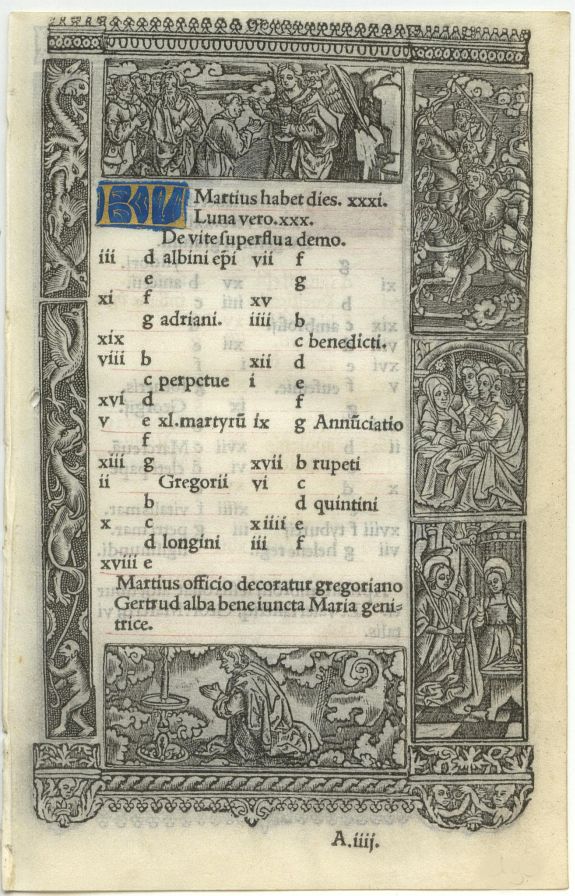 KL Martius habet dies. xxxi.
Luna vero. xxx.
De vite superflua demo.
iii d albini ep̄i
e
xi f
g adriani.
xix
viii b
c perpetue
xvi d
v e xl.martyrū
f
xiii g
ii Gregorii
b
x c
d longini
xviii e
vii f
g
xv
iiii b
c benedicti.
xii d
i e
f
ix g Annūciatio
xvii b rupeti
vi c
d quintini
xiiii e
iii f
Martius officio decoratur gregoriano
Gertrud alba bene iuncta Maria geni=
trice.
A.iiij.